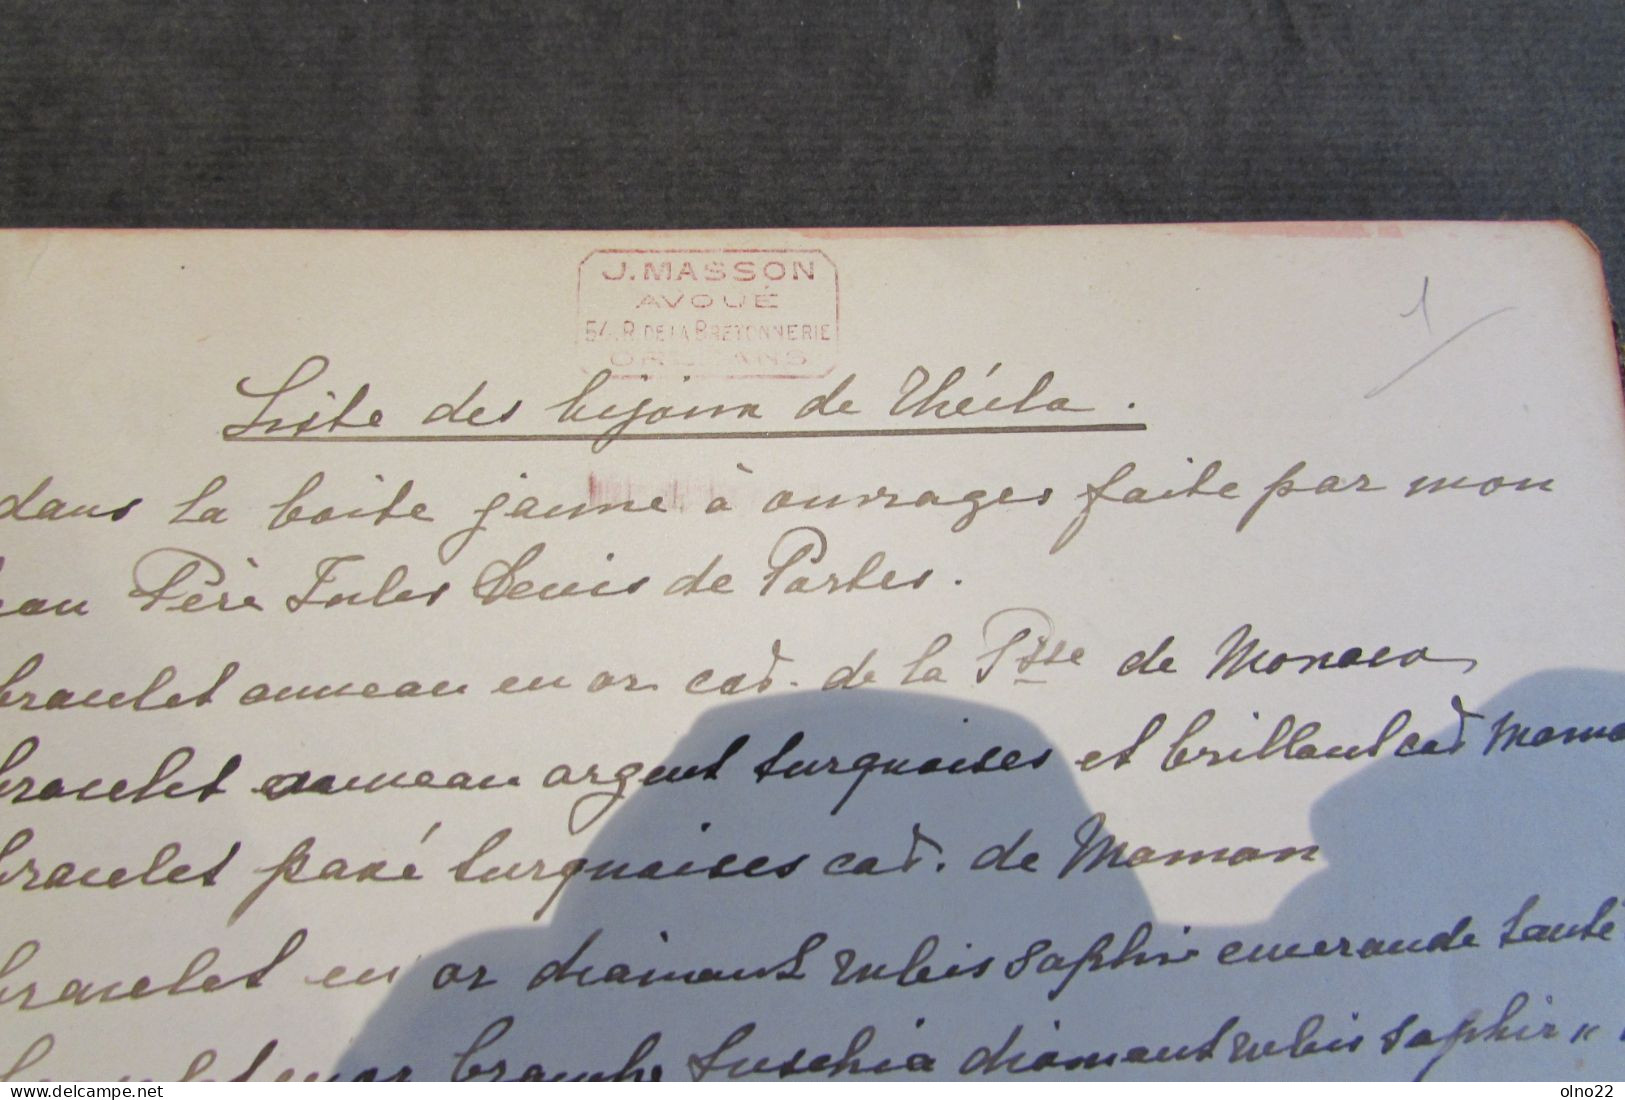 J. MASSON
AVOUÉ
54, R. DE LA BRETONNERIE
ORLEANS
1
Liste des bijoux de Thécla.
dans la boîte jaune à ouvrages faite par mon
Père Jules Denis de Partes.
bracelet anneau en or cad. de la Psse de Monaco
bracelet anneau argent turquoises et brillant cad Mama
bracelet pavé turquoises cad. de Maman
bracelet en or diamant rubis saphir emeraude Santé
or branche fuschia diamant rubis saphir "
www.delcampe.net
olno22